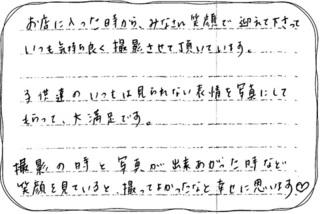 お店に入った時から、みなさん笑顔で迎えて下さって
いつも気持ち良く撮影させて頂いています。
子供達のいつもは見られない表情を写真にして
もらって、大満足です。
撮影の時と写真が出来あがった時など
笑顔を見ていると、撮ってよかったなと幸せに思います♡